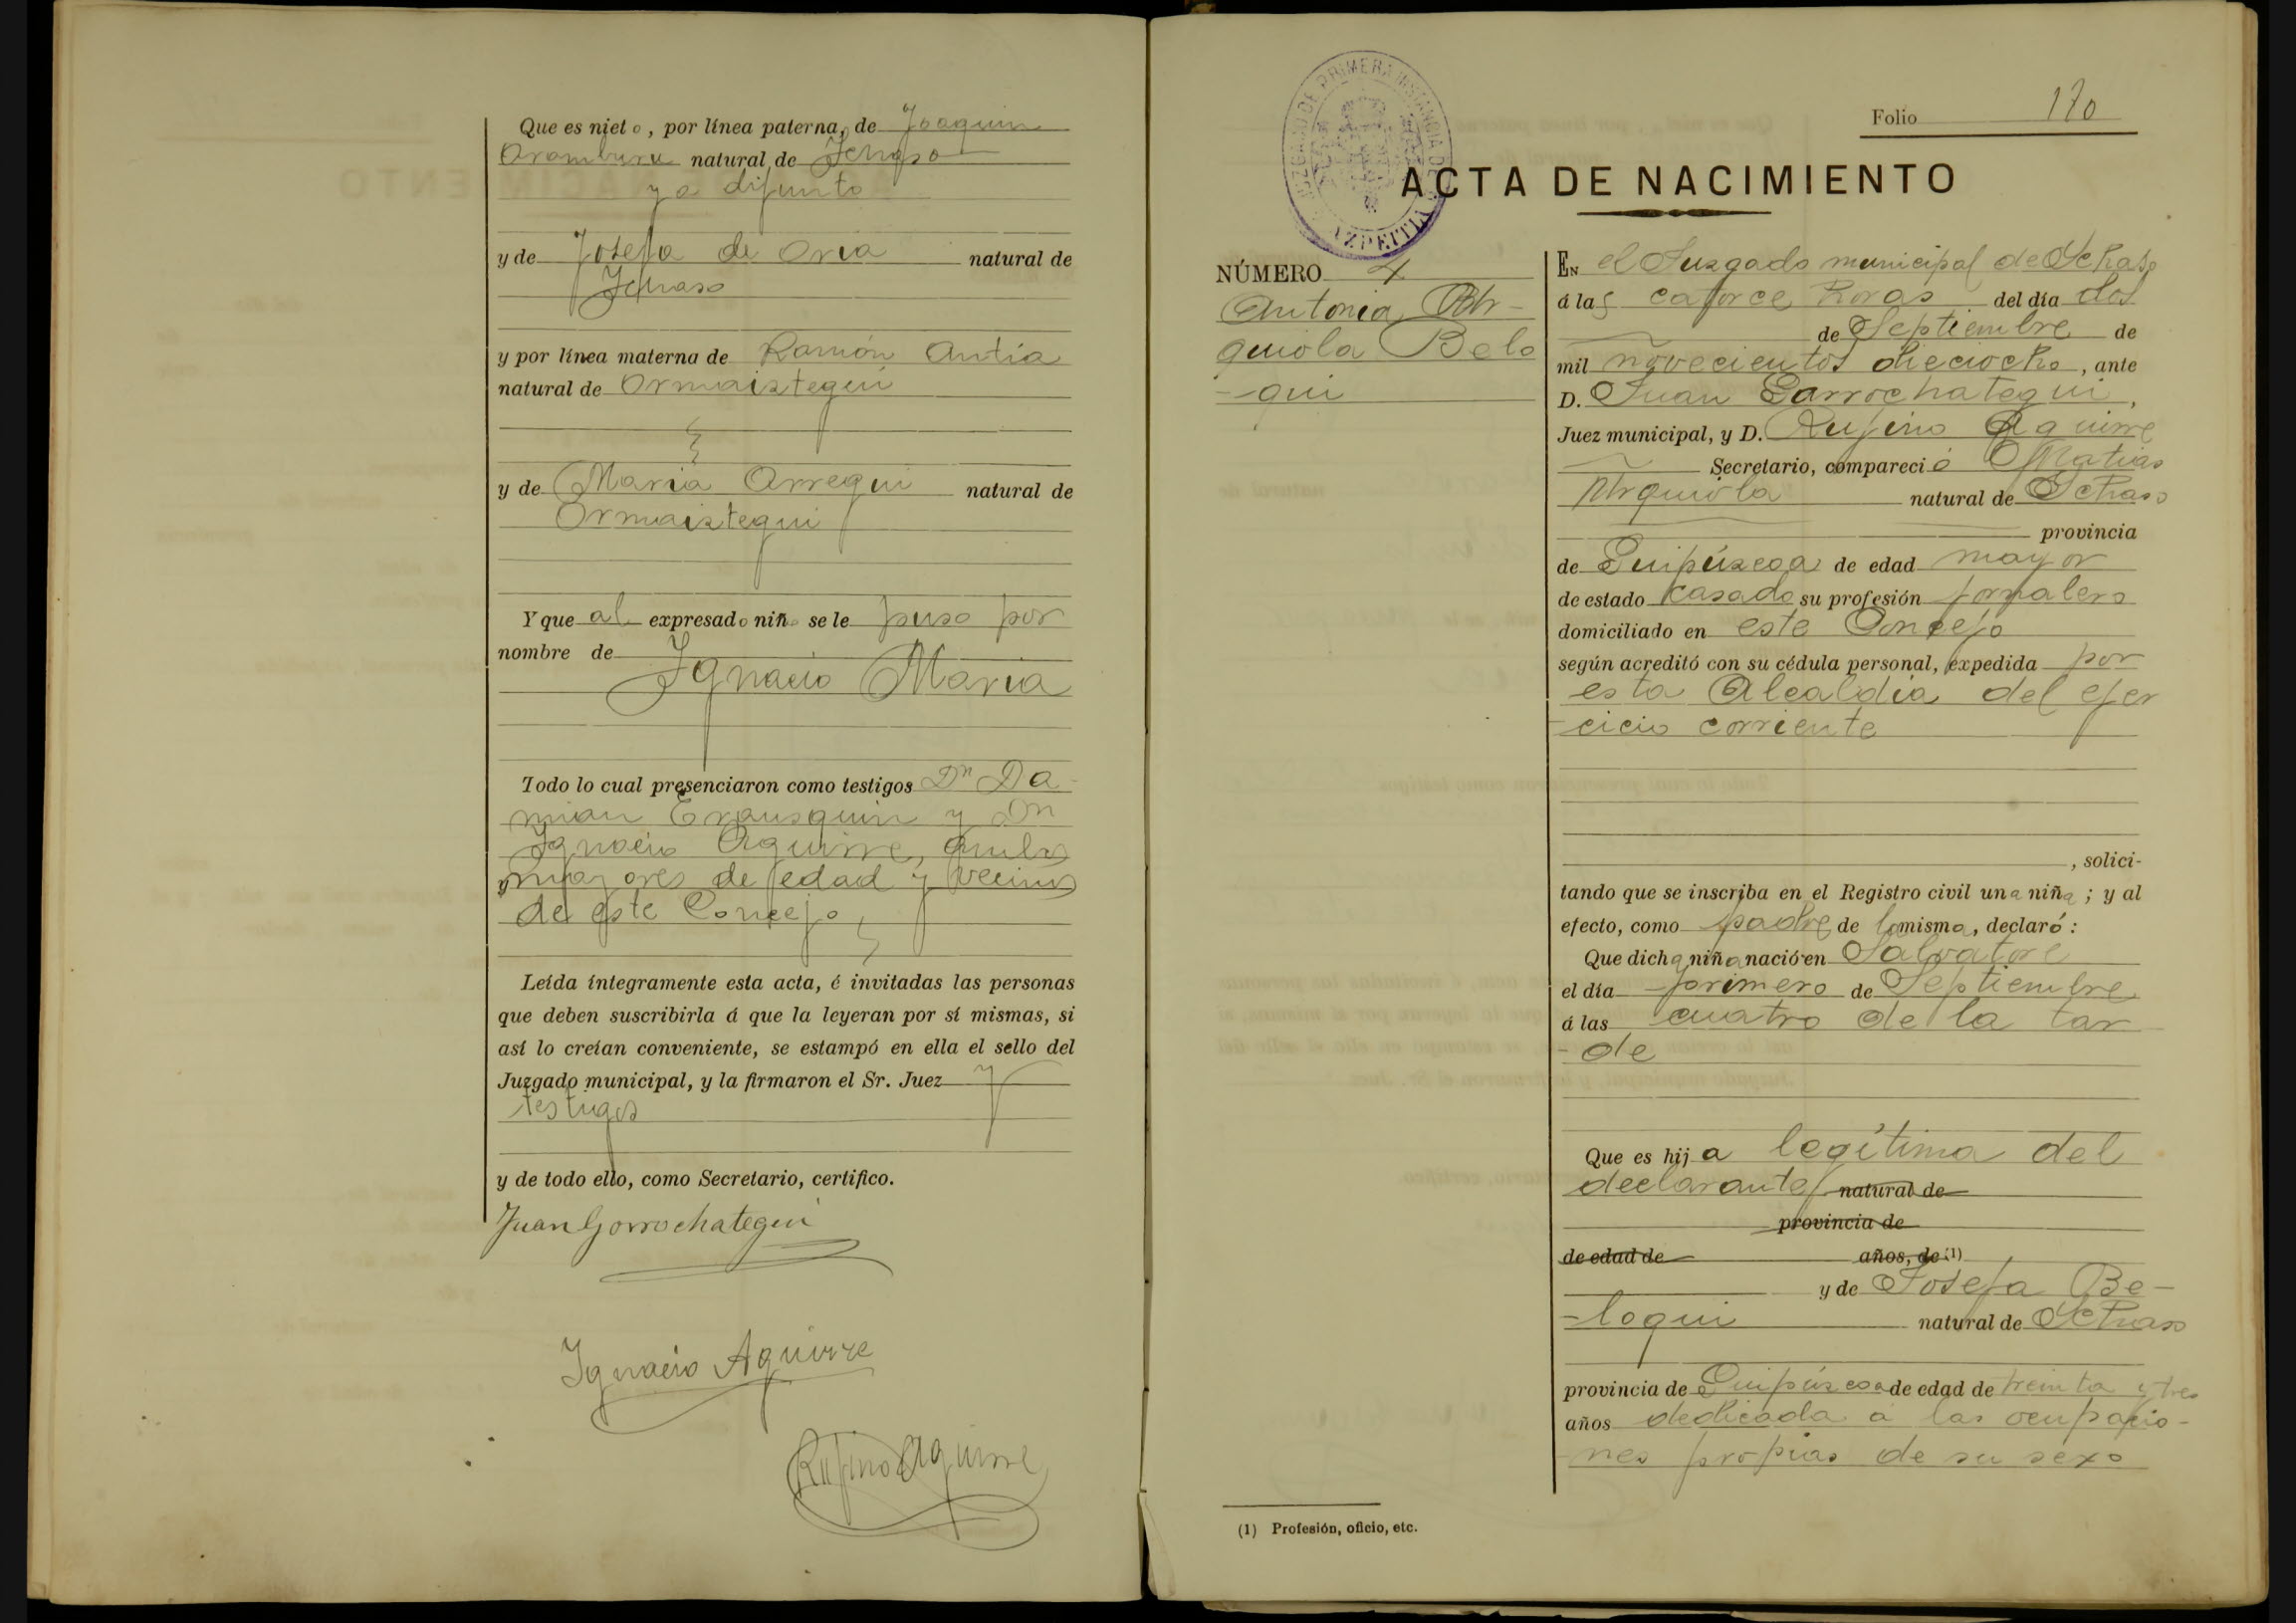 Que es nieto, por línea paterna, de Joaquin
Aramburu natural de Ichaso
ya difunto
y de Josefa de Oria natural de
Ichaso
y por línea materna de Ramón Antía
natural de Ormaiztegui
y de Maria Arregui natural de
Ormaiztegui
Y que al expresado niño se le puso por
nombre de
Ignacio Maria
Todo lo cual presenciaron como testigos Dn Da-
mian Erausquin y Dn
Ignacio Aguirre,
mayores de edad y vecinos
de este Concejo,
Leída íntegramente esta acta, é invitadas las personas
que deben suscribirla á que la leyeran por sí mismas, si
así lo creían conveniente, se estampó en ella el sello del
Juzgado municipal, y la firmaron el Sr. Juez y
testigos
y de todo ello, como Secretario, certifico.
Juan Gorrochategui
Ignacio Aguirre
Rufino Aguirre
Folio 170
JUZGADO DE PRIMERA INSTANCIA DE AZPEITIA
ACTA DE NACIMIENTO
NÚMERO 4
Antonia Ur-
quiola Belo
-qui
EN el Juzgado municipal de Ichaso
á las catorce horas del día dos
de Septiembre de
mil novecientos dieciocho, ante
D. Juan Garrochategui,
Juez municipal, y D. Rufino Aguirre
Secretario, compareció Matias
Urquiola natural de Ichaso
provincia
de Guipúzcoa de edad mayor
de estado casado su profesión jornalero
domiciliado en este Concejo
según acreditó con su cédula personal, expedida por
esta Alcaldía del ejer
-cicio corriente
, solici-
tando que se inscriba en el Registro civil una niña; y al
efecto, como padre de la misma, declaró:
Que dicha niña nació en Salvatore
el día primero de Septiembre
á las cuatro de la tar
-de
Que es hija legítima del
declarante natural de
provincia de
de edad de años, de (1)
y de Josefa Be-
-loqui natural de Ichaso
provincia de Guipúzcoa de edad de treinta y tres
años dedicada á las ocupacio-
nes propias de su sexo
(1) Profesión, oficio, etc.